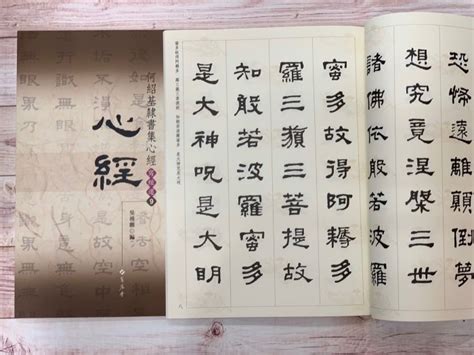 何紹基隸書集心經
心經
恐怖遠離顛倒夢
想究竟涅槃三世
諸佛依般若波羅
蜜多故得阿耨多
羅三藐三菩提故
知般若波羅蜜多
是大神呪是大明